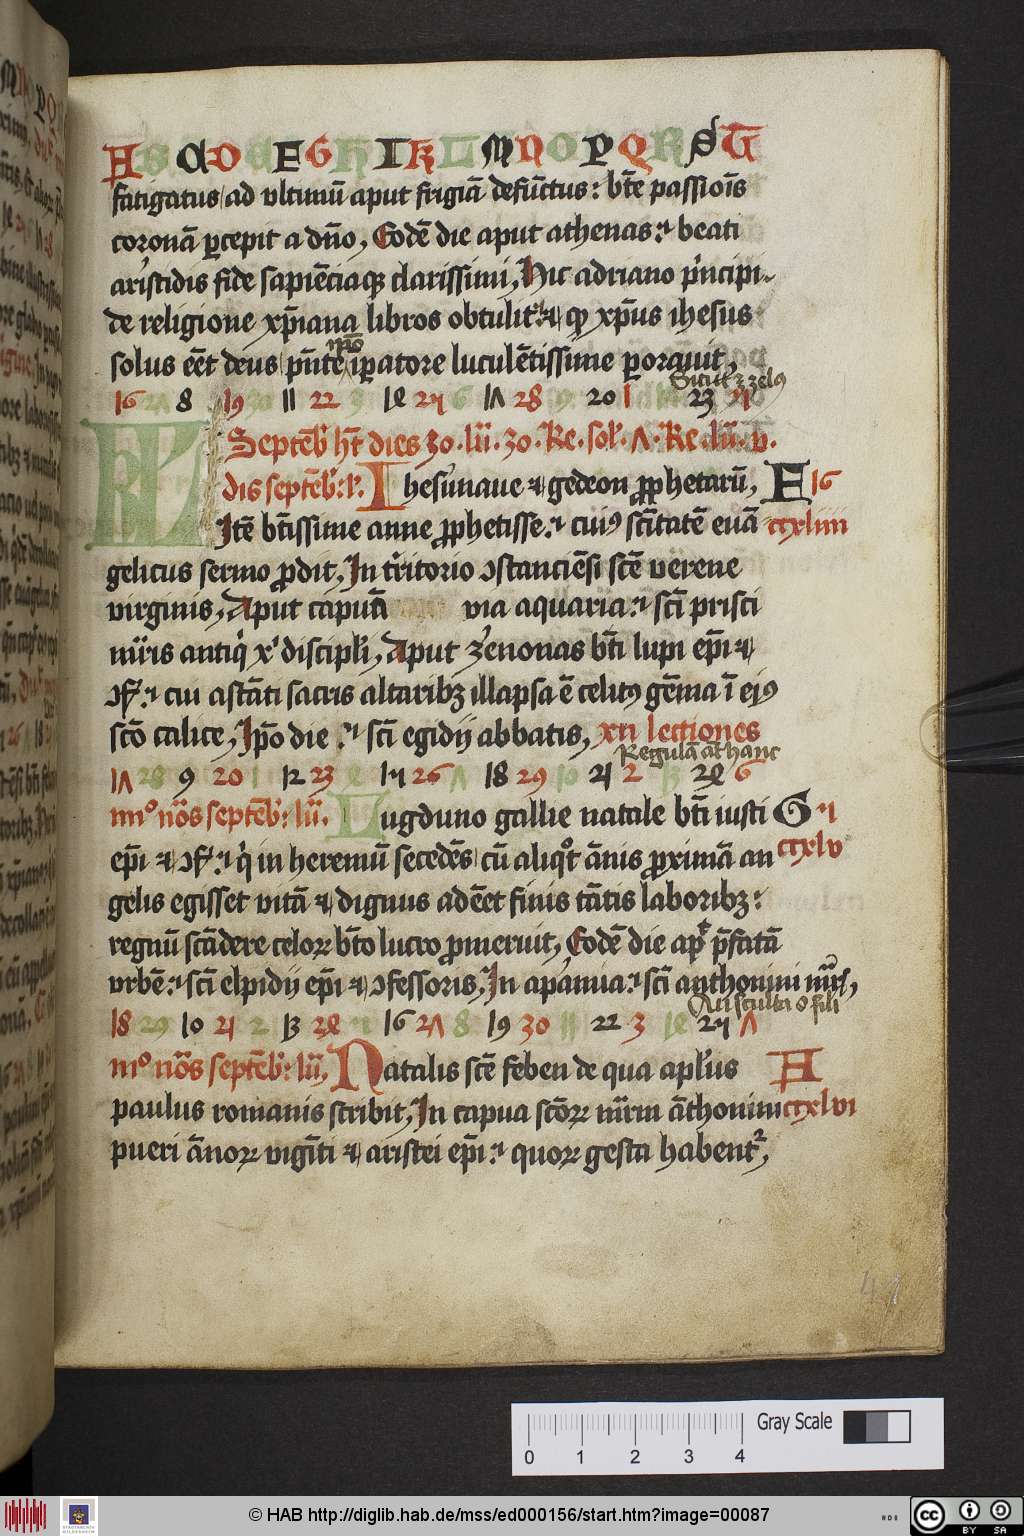 A B C D E F G H I K L M N O P Q R S T
fatigatus ad vltimū aput frigiā defūctus: bt̄e passiōis
coronā ꝑcepit a dn̄o, Eodē die aput athenas: beati
aristidis fide sapiēciaqꝫ clarissimi, Hic adriano p'ncipi
de religione xp̄iana libros obtulit et qꝫ xp̄us ihesus
solus eēt deus p̄nte ip̄o īꝑatore luculētissime ꝑorauit,
Sicut ꝫ zelꝰ
16 27 8 19 30 11 22 3 14 25 6 17 28 9 20 1 12 23 4
KL Septēbꝝ hꝫ dies 30 · lū · 30 · Re · sol · 7 · Re · lū · v ·
dis septēb: l'. Ihesu naue et gedeon ꝓphetarū, E 16
Itē bt̄issime anne ꝓphetisse: cuiꝰ sc̄itatē euā ccxliiii
gelicus sermo ꝓdit, In t'ritorio ꝯstanciēsi sc̄e verene
virginis, Aput capuā via aquaria: sc̄i prisci
mr̄is antiq' xp̄i discipli, Aput zenonas bt̄i lupi ep̄i et
ꝯf: cui astāti sacris altaribꝫ illapsa ē celitꝰ gēma ī ejꝰ
sc̄o calice, Ip̄o die: sc̄i egidij abbatis, xii lectiones
Regulā at hanc
17 28 9 20 1 12 23 4 15 26 7 18 29 10 21 2 13 24 6
iiiiº nōs septēb: lū. Lugduno gallie natale bt̄i iusti G
ep̄i et ꝯf: q' in heremū secedēs cū aliqͦt ānis ꝓximā an ccxlv
gelis egisset vitā et dignus adēet finis tātis laboribꝫ:
regnū scādere celoꝝ bt̄o lucro ꝓmeruit, Eodē die ap' p̄fatā
vrbē: sc̄i elpidij ep̄i et ꝯfessoris, In apamia: sc̄i anthonini mr̄is,
Aui sculki o fili
18 29 10 21 2 13 24 5 16 27 8 19 30 11 22 3 14 25 7
iiiº nōs septēb: lū, Natalis sc̄e feben de qua aplus A
paulus romanis scribit, In capua sc̄oꝝ mr̄m āthonini ccxlvi
pueri ānoꝝ vigīti et aristei ep̄i: quoꝝ gesta habent',
47
0 1 2 3 4
Gray Scale
© HAB http://diglib.hab.de/mss/ed000156/start.htm?image=00087
cc BY SA